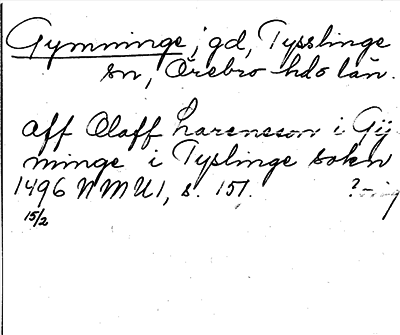 Gymninge; gd, Tysslinge
sn, Örebro hd o län.
aff Olaff Larensson i Gÿ
minge i Tyslinge sokn
1496 NMU1, s. 151.
15/2